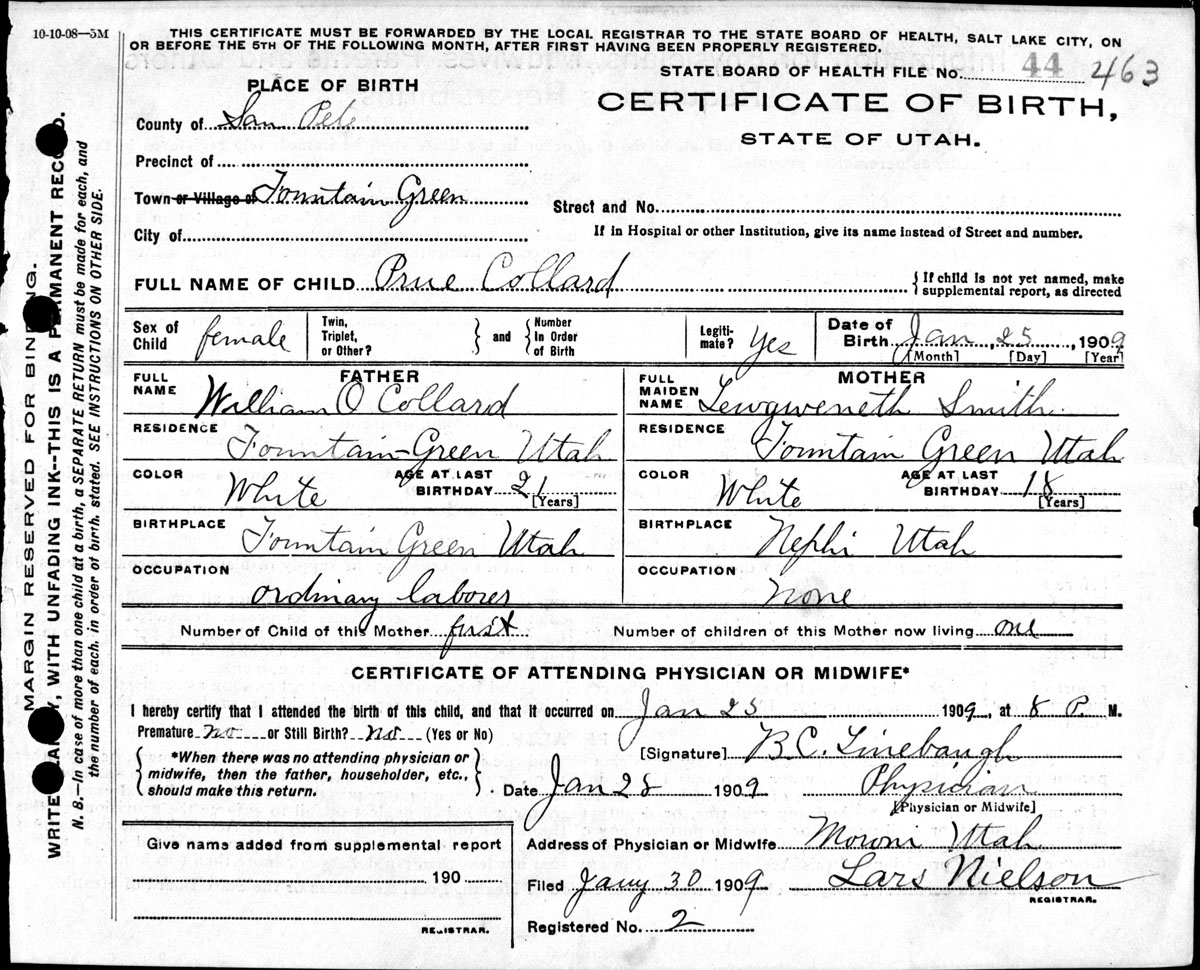 10-10-08—5M
THIS CERTIFICATE MUST BE FORWARDED BY THE LOCAL REGISTRAR TO THE STATE BOARD OF HEALTH, SALT LAKE CITY, ON
OR BEFORE THE 5TH OF THE FOLLOWING MONTH, AFTER FIRST HAVING BEEN PROPERLY REGISTERED.
STATE BOARD OF HEALTH FILE No. 44 463
PLACE OF BIRTH
CERTIFICATE OF BIRTH,
STATE OF UTAH.
County of San Pete
Precinct of
Town or Village of Fountain Green
Street and No.
City of
If in Hospital or other Institution, give its name instead of Street and number.
FULL NAME OF CHILD Prue Collard
{ If child is not yet named, make
supplemental report, as directed
Sex of Child female
Twin, Triplet, or Other? } and { Number In Order of Birth
Legiti-mate? Yes
Date of Birth Jan 25, 1909
[Month] [Day] [Year]
FATHER
FULL NAME William O Collard
RESIDENCE Fountain Green Utah
COLOR White
AGE AT LAST BIRTHDAY 21 [Years]
BIRTHPLACE Fountain Green Utah
OCCUPATION ordinary laborer
MOTHER
FULL MAIDEN NAME Lewgweneth Smith
RESIDENCE Fountain Green Utah
COLOR White
AGE AT LAST BIRTHDAY 18 [Years]
BIRTHPLACE Nephi Utah
OCCUPATION None
Number of Child of this Mother first
Number of children of this Mother now living one
CERTIFICATE OF ATTENDING PHYSICIAN OR MIDWIFE*
I hereby certify that I attended the birth of this child, and that it occurred on Jan 25 1909, at 8 P. M.
Premature no or Still Birth? no (Yes or No)
{ *When there was no attending physician or
midwife, then the father, householder, etc.,
should make this return. }
[Signature] B.C. Linebaugh
Date Jan 28 1909
Physician
[Physician or Midwife]
Give name added from supplemental report
190
REGISTRAR.
Address of Physician or Midwife Moroni Utah
Filed Jany 30 1909 Lars Nielson
REGISTRAR.
Registered No. 2
MARGIN RESERVED FOR BINDING.
WRITE PLAINLY, WITH UNFADING INK--THIS IS A PERMANENT RECORD.
N. B.—In case of more than one child at a birth, a SEPARATE RETURN must be made for each, and
the number of each, in order of birth, stated. SEE INSTRUCTIONS ON OTHER SIDE.